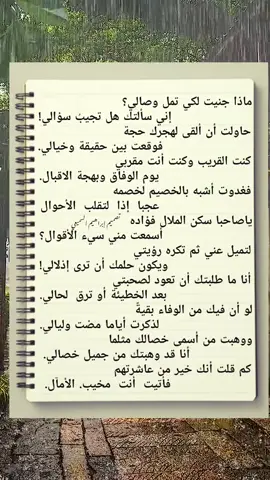 ماذا جنيت لكي تمل وصالي؟
إني سألتك هل تجيب سؤالي!
حاولت أن ألقى لهجرك حجة
فوقعت بين حقيقة وخيالي.
كنت القريب وكنت أنت مقربي
يوم الوفاق وبهجة الاقبال.
فغدوت أشبه بالخصيم لخصمه
عجبا إذا لتقلب الأحوال
ياصاحبا سكن الملال فؤاده
أسمعت مني سيء الأقوال؟
لتميل عني ثم تكره رؤيتي
ويكون حلمك أن ترى إذلالي!
أنا ما طلبتك أن تعود لصحبتي
بعد الخطيئة أو ترق لحالي.
لو أن فيك من الوفاء بقية
لذكرت أياما مضت وليالي.
ووهبت من أسمى خصالك مثلما
أنا قد وهبتك من جميل خصالي.
كم قلت أنك خير من عاشرتهم
فأتيت أنت مخيب الآمال.